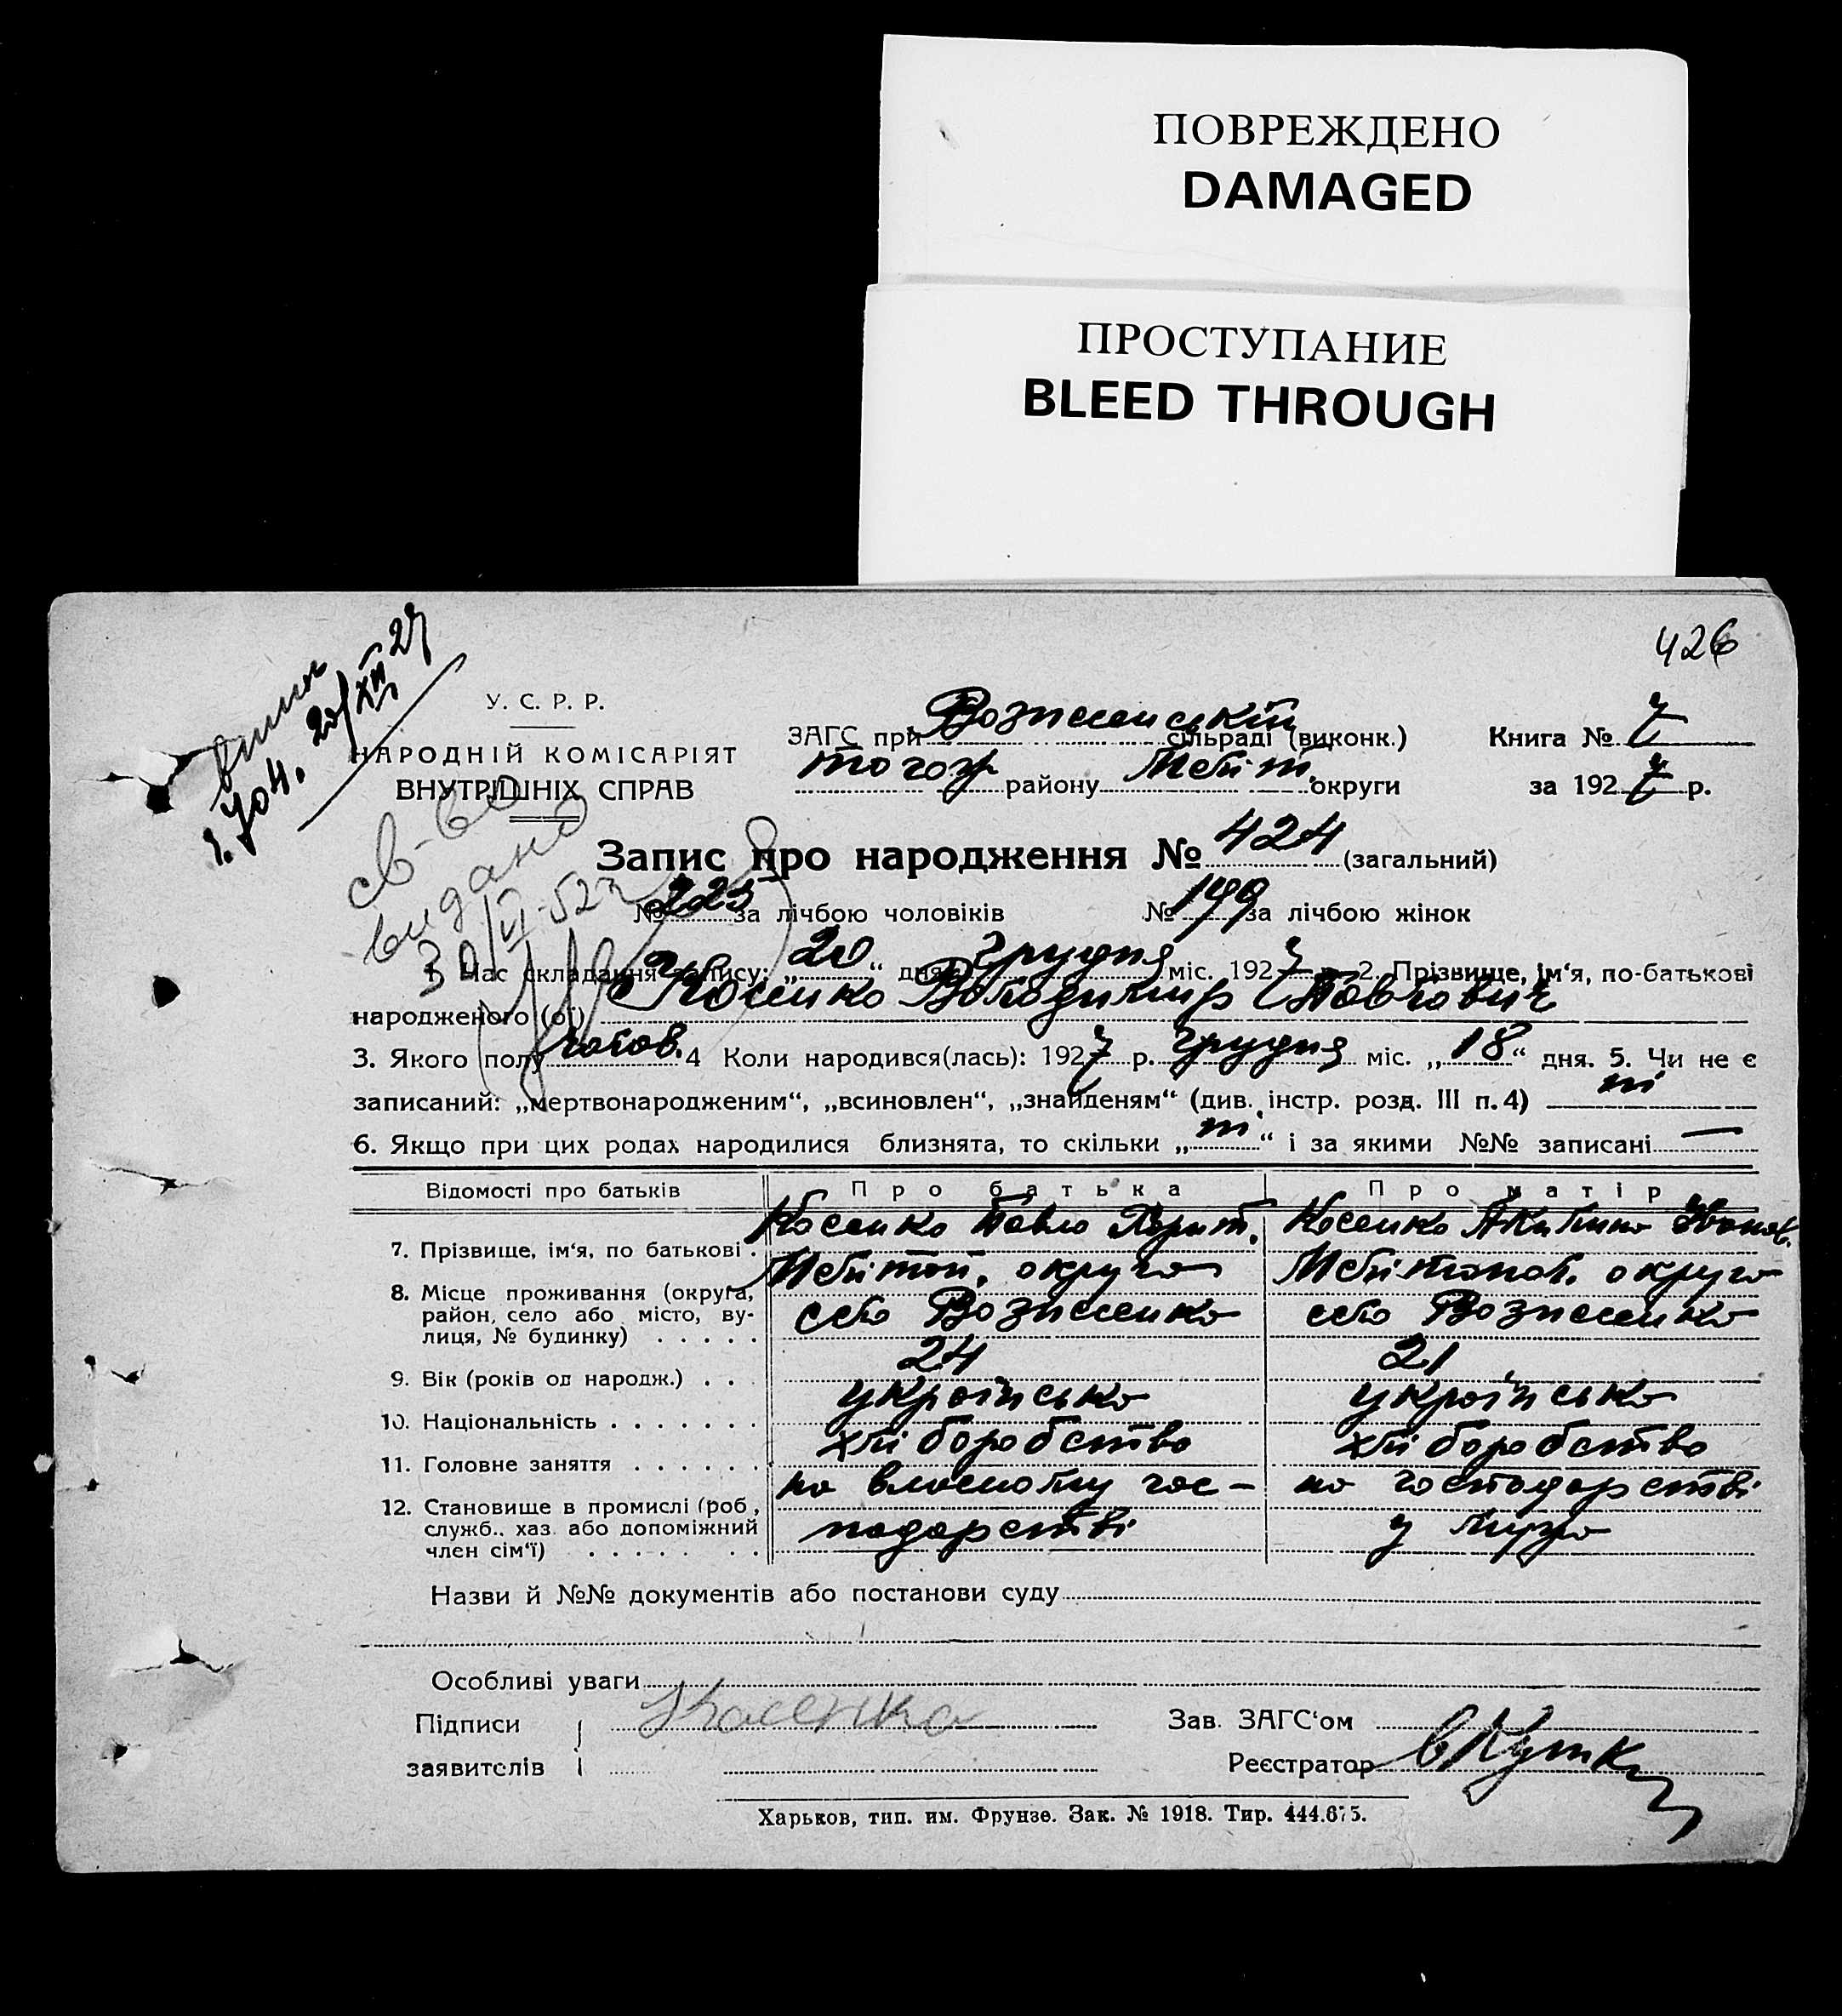 ПОВРЕЖДЕНО
DAMAGED
ПРОСТУПАНИЕ
BLEED THROUGH
426
20/XII 27
У. С. Р. Р.
НАРОДНІЙ КОМІСАРІЯТ
ВНУТРІШНІХ СПРАВ
ЗАГС при Вознесенській сільраді (виконк.)
району Мліт. округи
Книга № 7
за 1927 р.
св-во
видано
30/VI-52 г
Запис про народження № 424 (загальний)
№ 225 за лічбою чоловіків № 199 за лічбою жінок
1. Час складання запису: „20“ дня грудня міс. 1927 р. 2. Прізвище, ім‘я, по-батькові
народженого (ої) Косенко Володимир Павлович
3. Якого полу чолов. 4 Коли народився(лась): 1927 р. грудня міс. „18“ дня. 5. Чи не є
записаний: „мертвонародженим“, „всиновлен“, „знайденям“ (див. інстр. розд. III п. 4) ні
6. Якщо при цих родах народилися близнята, то скільки „ні“ і за якими №№ записані —
Відомості про батьків Про батька Про матір
7. Прізвище, ім‘я, по батькові . Косенко Павло Косенко Акилина Іванов.
8. Місце проживання (округа, округа округа
район, село або місто, ву- село Вознесенка село Вознесенка
лиця, № будинку) . . . . .
9. Вік (років од народж.) . . . 24 21
10. Національність . . . . . . . українська українська
11. Головне заняття . . . . . . хліборобство хліборобство
12. Становище в промислі (роб., на власному гос- на господарстві
служб., хаз. або допоміжний подарстві у
член сім‘ї) . . . . . . .
Назви й №№ документів або постанови суду
Особливі уваги
Підписи Косенко Зав. ЗАГС‘ом
заявителів Реєстратор
Харьков, тип. им. Фрунзе. Зак. № 1918. Тир. 444.675.